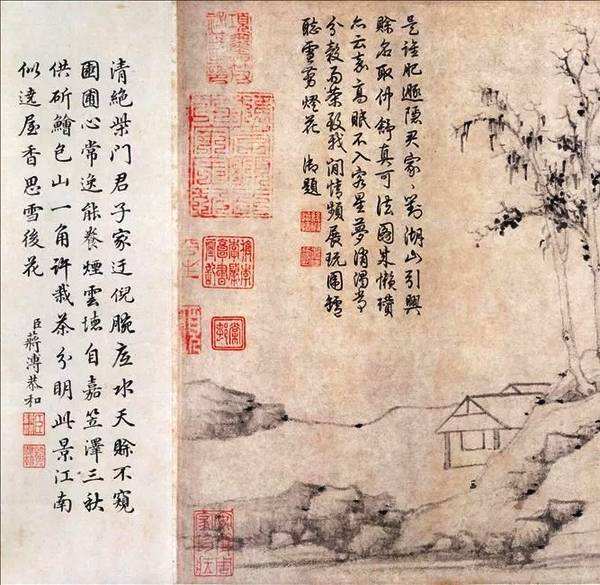 是誰肥遯隱君家〻對湖山引興
賒名取仲舒真可法圖成懶瓚
亦云嘉高眠不入客星夢消渴常
分穀雨茶致我閒情頻展玩圍爐
聽雪剪燈花 御題
棠邨
清絶柴門君子家迂倪腕底水天賒不窺
園圃心常逸能養煙雲境自嘉笠澤三秋
供斫鱠包山一角許栽茶分明此景江南
似遶屋香思雪後花
臣蔣溥恭和